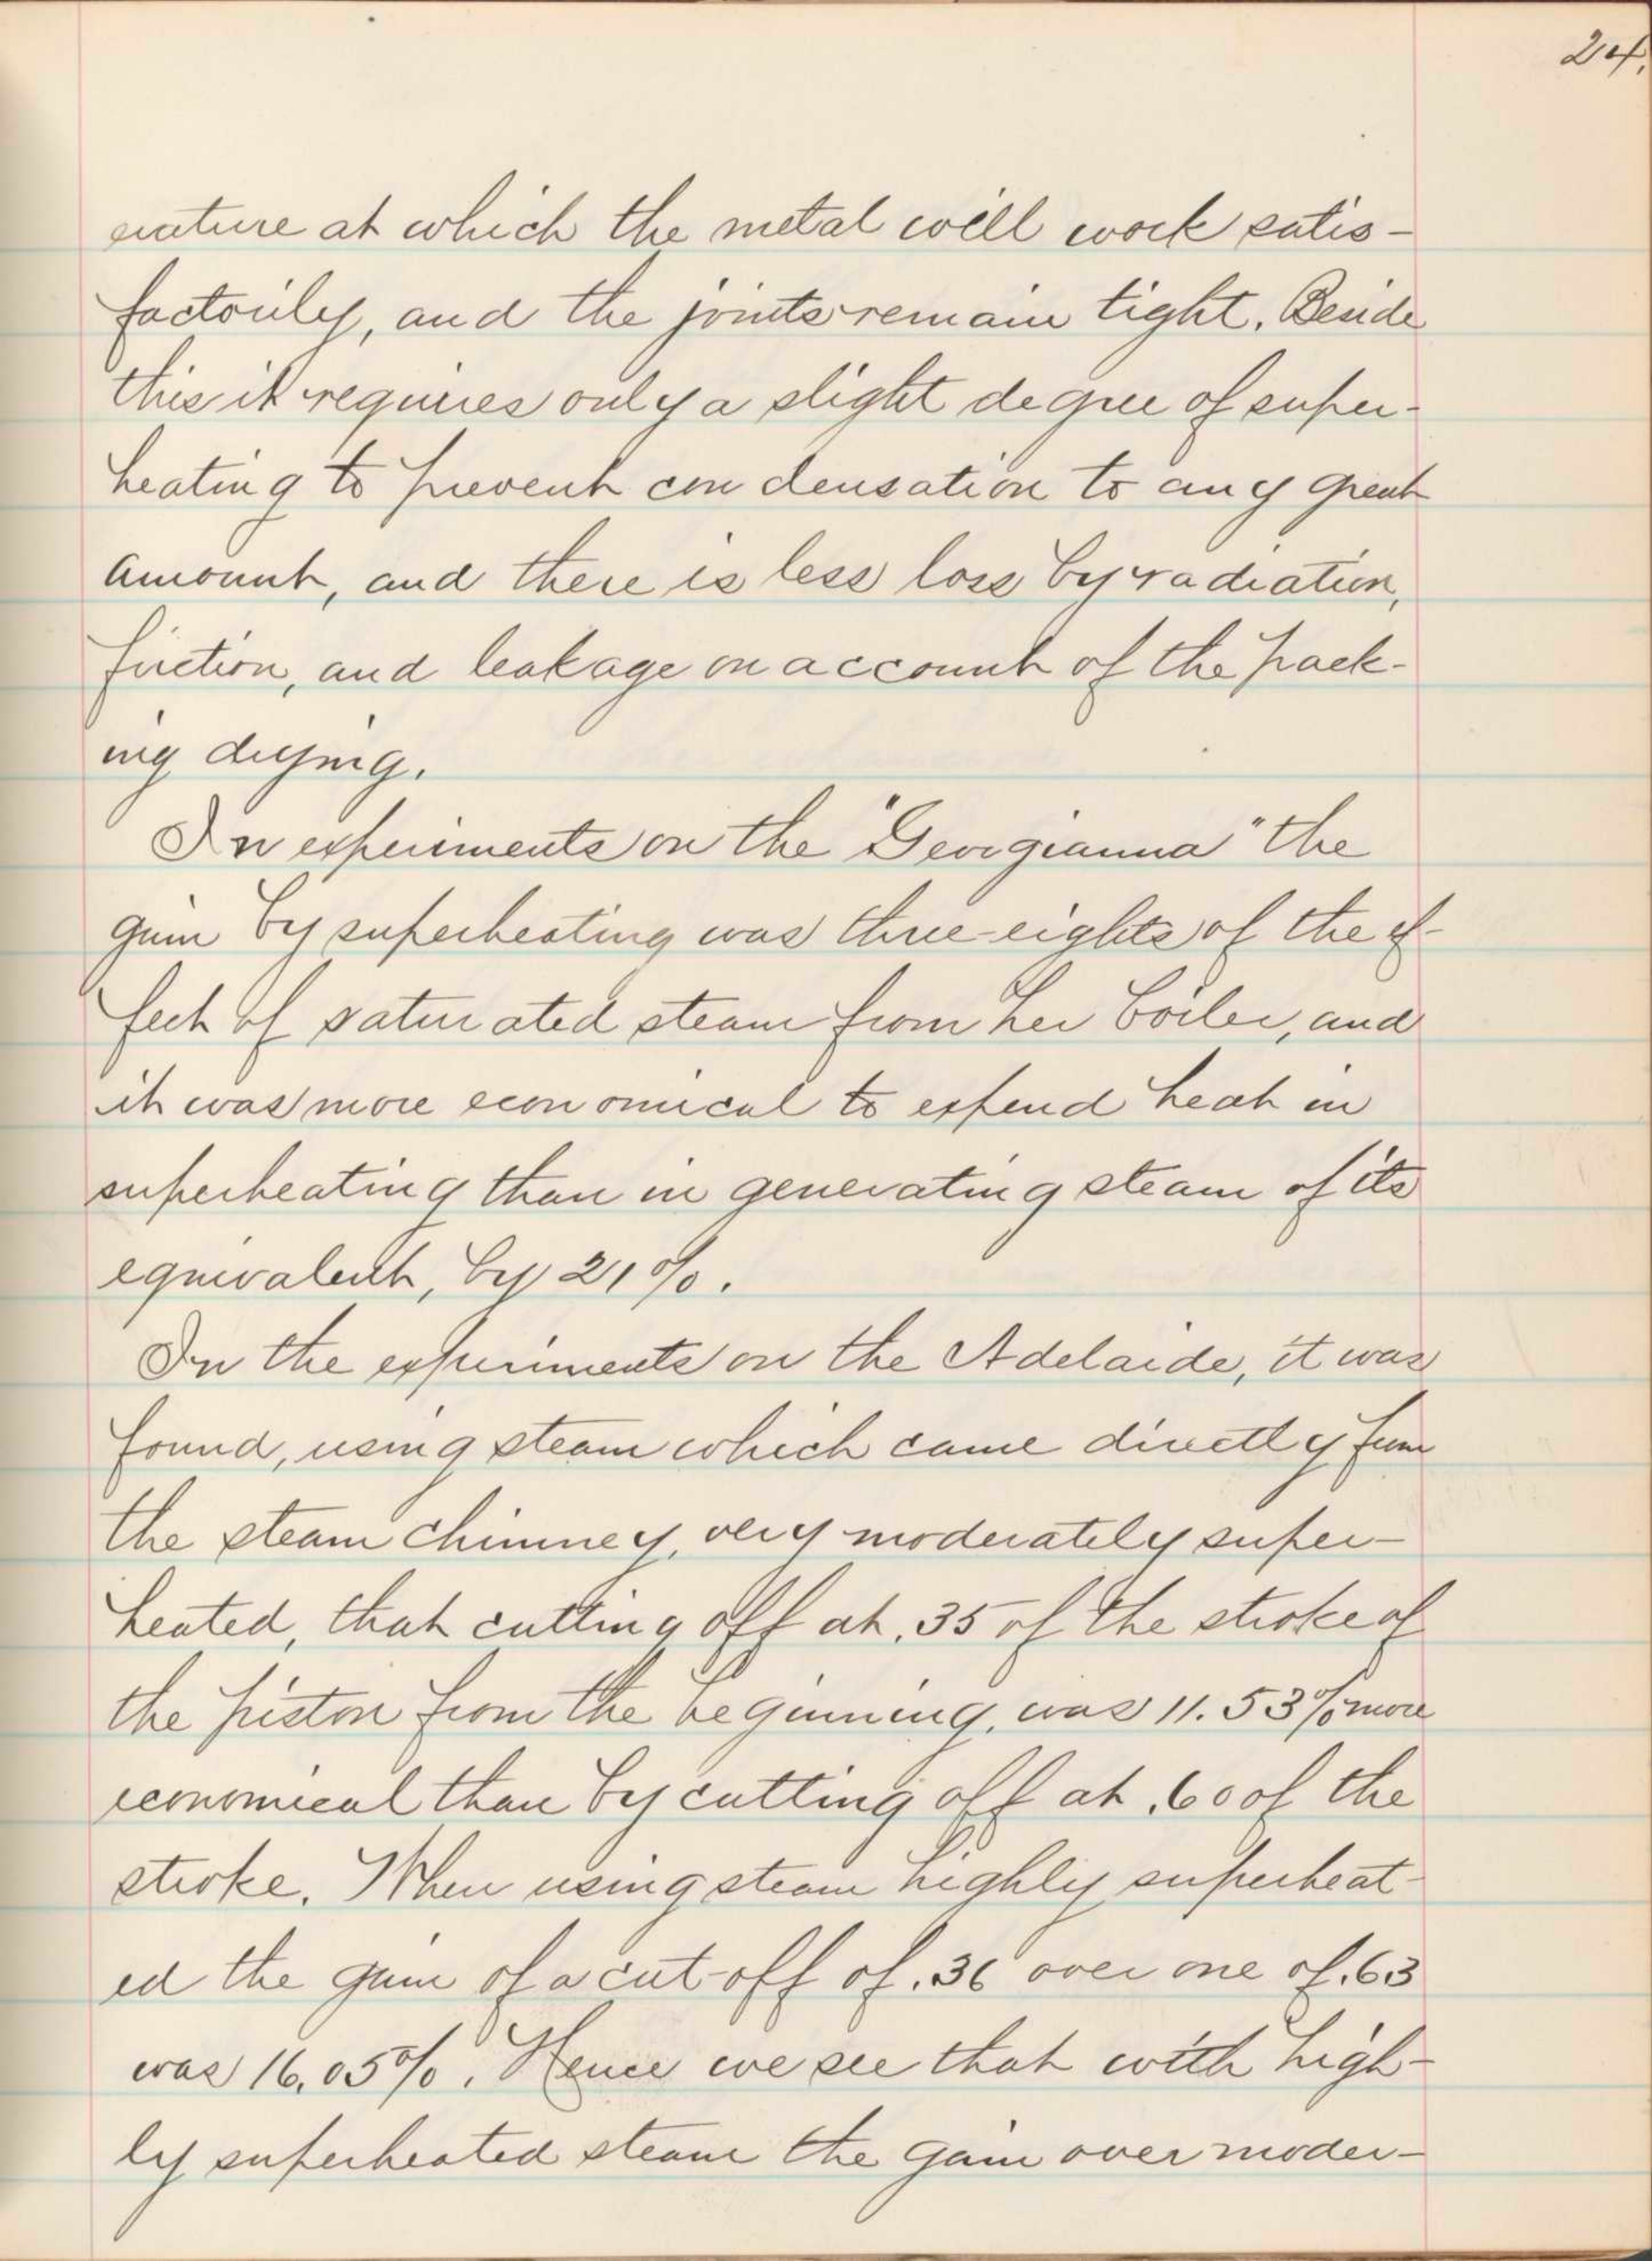 24.
erature at which the metal will work satis-
factorily, and the joints remain tight. Beside
this it requires only a slight degree of super-
heating to prevent condensation to any great
amount, and there is less loss by radiation,
friction, and leakage on account of the pack-
ing drying.
In experiments on the "Georgianna" the
gain by superheating was three-eights of the ef-
fect of saturated steam from her boiler, and
it was more economical to expend heat in
superheating than in generating steam of its
equivalent, by 21%.
In the experiments on the Adelaide, it was
found, using steam which came directly from
the steam chimney, very moderately super-
heated, that cutting off at .35 of the stroke of
the piston from the beginning, was 11.53% more
economical than by cutting off at .60 of the
stroke. When using steam highly superheat-
ed the gain of a cut-off of .36 over one of .63
was 16.05%. Hence we see that with high-
ly superheated steam the gain over moder-